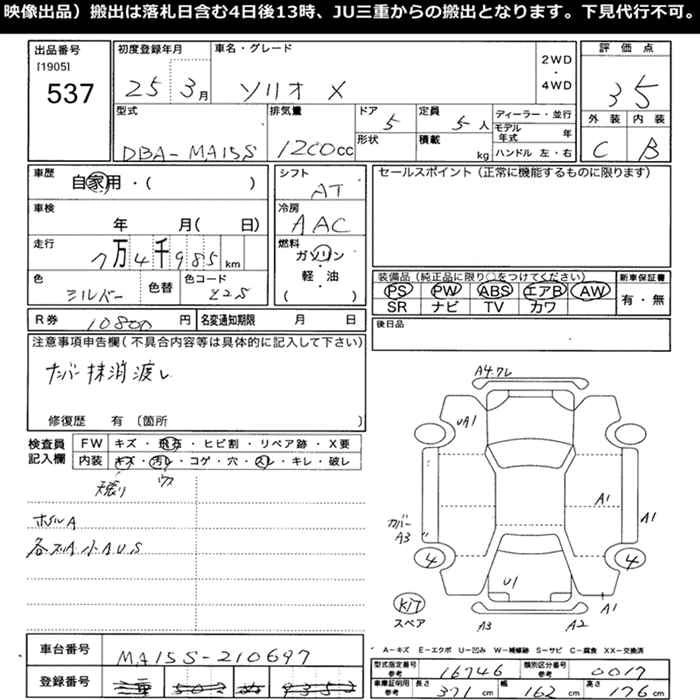 映像出品）搬出は落札日含む4日後13時、JU三重からの搬出となります。下見代行不可。
出品番号
[1905]
537
初度登録年月
25 3月
車名・グレード
ソリオ X
2WD
・
4WD
評価点
3.5
外装 内装
C B
型式
DBA-MA15S
排気量
1200cc
ドア
5
形状
定員
5人
積載
kg
ディーラー・並行
モデル年式 年
ハンドル 左・右
車歴
自家用・( )
車検
年 月( 日)
走行
7万4千985km
色
シルバー
色替
色コード
Z2S
シフト
AT
冷房
AAC
燃料
ガソリン
・
軽・油
( )
セールスポイント（正常に機能するものに限ります）
装備品（純正品に限り○をつけてください）
PS PW ABS エアB AW
SR ナビ TV カワ
新車保証書
有・無
R券 10800円
名変通知期限 月 日
後日品
注意事項申告欄（不具合内容等は具体的に記入して下さい）
ナンバー抹消渡し
修復歴 有 〔箇所
検査員
記入欄
FW キズ・飛石・ヒビ割・リペア跡・X要
内装 キズ・汚レ・コゲ・穴・スレ・キレ・破レ
天張り
ホイルA
各所A小AUS
A4.ワレ
UA1
A1
A1
カバー
A3
4
4
U1
A1
K17
スペア
A3
A2
車台番号
MA15S-210697
登録番号
三重
A-キズ E-エクボ U-凹み W-補修跡 S-サビ C-腐食 XX-交換済
型式指定番号
参考
16746
類別区分番号
参考
0017
車庫証明用
参考
長さ 371cm
幅 162cm
高さ 176cm